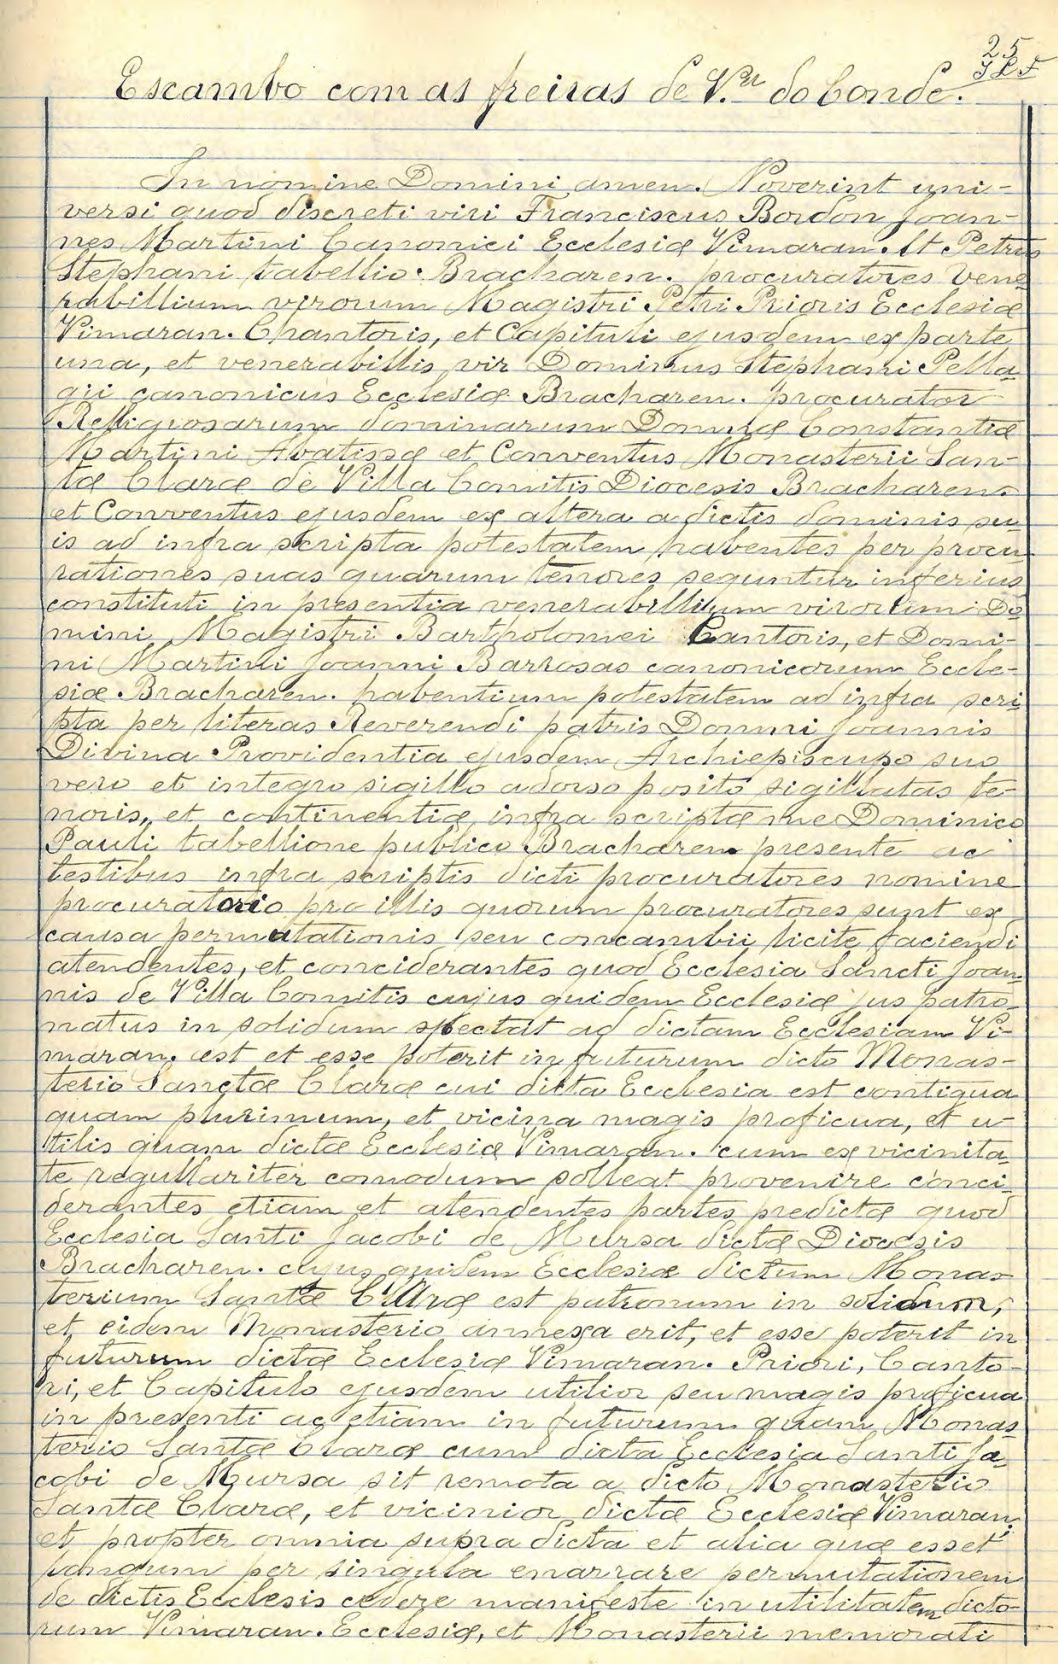 25
Escambo com as freiras de V.ª do Conde.
In nomine Domini amen. Noverint uni-
versi quod discreti viri Franciscus Bordon Joan-
nes Martini Canonici Ecclesiæ Vimaran. et Petrus
Stephani tabellio Bracharen. procuratores vene-
rabillium virorum Magistri Petri Prioris Ecclesiæ
Vimaran. Chantoris, et Capituli ejusdem ex parte
una, et venerabillis vir Dominus Stephani Pella-
gii canonicus Ecclesiæ Bracharen. procurator
Relligiosarum dominarum Donnæ Constantiæ
Martini Abatissæ et Conventus Monasterii San-
tæ Claræ de Villa Comitis Diocesis Bracharens
et Conventus ejusdem ex altera a dictis dominis su-
is ad infra scripta potestatem habentes per procu-
rationes suas quarum tenores seguntur inferius
constituti in presentia venerabillium virorum Do-
mini Magistri Bartholomei Cantoris, et Domi-
ni Martini Joanni Barrosas canonicorum Eccle-
siæ Bracharen. habentium potestatem ad infra scri-
pta per literas Reverendi patris Domni Joannis
Divina Providentia ejusdem Archiepiscupo suo
vero et integro sigillo adorso posito sigillatas te-
noris, et continentiæ infra scriptæ me Dominico
Pauli tabellione publico Bracharen. presente ac
testibus infra scriptis dicti procuratores nomine
procuratorio pro illis quorum procuratores sunt ex
causa permutationis seu concambii licite faciendi
atendentes, et conciderantes quod Ecclesia Sancti Joan-
nis de Villa Comitis cujus quidem Ecclesiæ jus patro-
natus in solidum spectat ad dictam Ecclesiam Vi-
maran. est et esse poterit in futurum dicto Monas-
terio Sanctæ Claræ cui dicta Ecclesia est contigua
quam plurimum, et vicina magis proficua, et u-
tilis quam dictæ Ecclesiæ Vimaran. cum ex vicinita-
te regullariter comodum solleat provenire conci-
derantes etiam et atendentes partes predictæ quod
Ecclesia Santi Jacobi de Mursa dictæ Diocesis
Bracharen. cujus quidem Ecclesiæ dictum Monas-
terium Santæ Claræ est patronum in solidum,
et eidem Monasterio annexa erit, et esse poterit in
futurum dictæ Ecclesiæ Vimaran. Priori, Canto-
ri, et Capitulo ejusdem utilior seu magis proficua
in presenti ac etiam in futurum quam Monas
terio Santæ Claræ cum dicta Ecclesia Santi Ja-
cobi de Mursa sit remota a dicto Monasterio
Santæ Claræ, et vicinior dictæ Ecclesiæ Vimaran;
et propter omnia supra dicta et alia quæ esset
longum per singula enarrare permutationem
de dictis Ecclesis cedere manifeste in utilitatem dicto-
rum Vimaran. Ecclesiæ, et Monasterii memorati